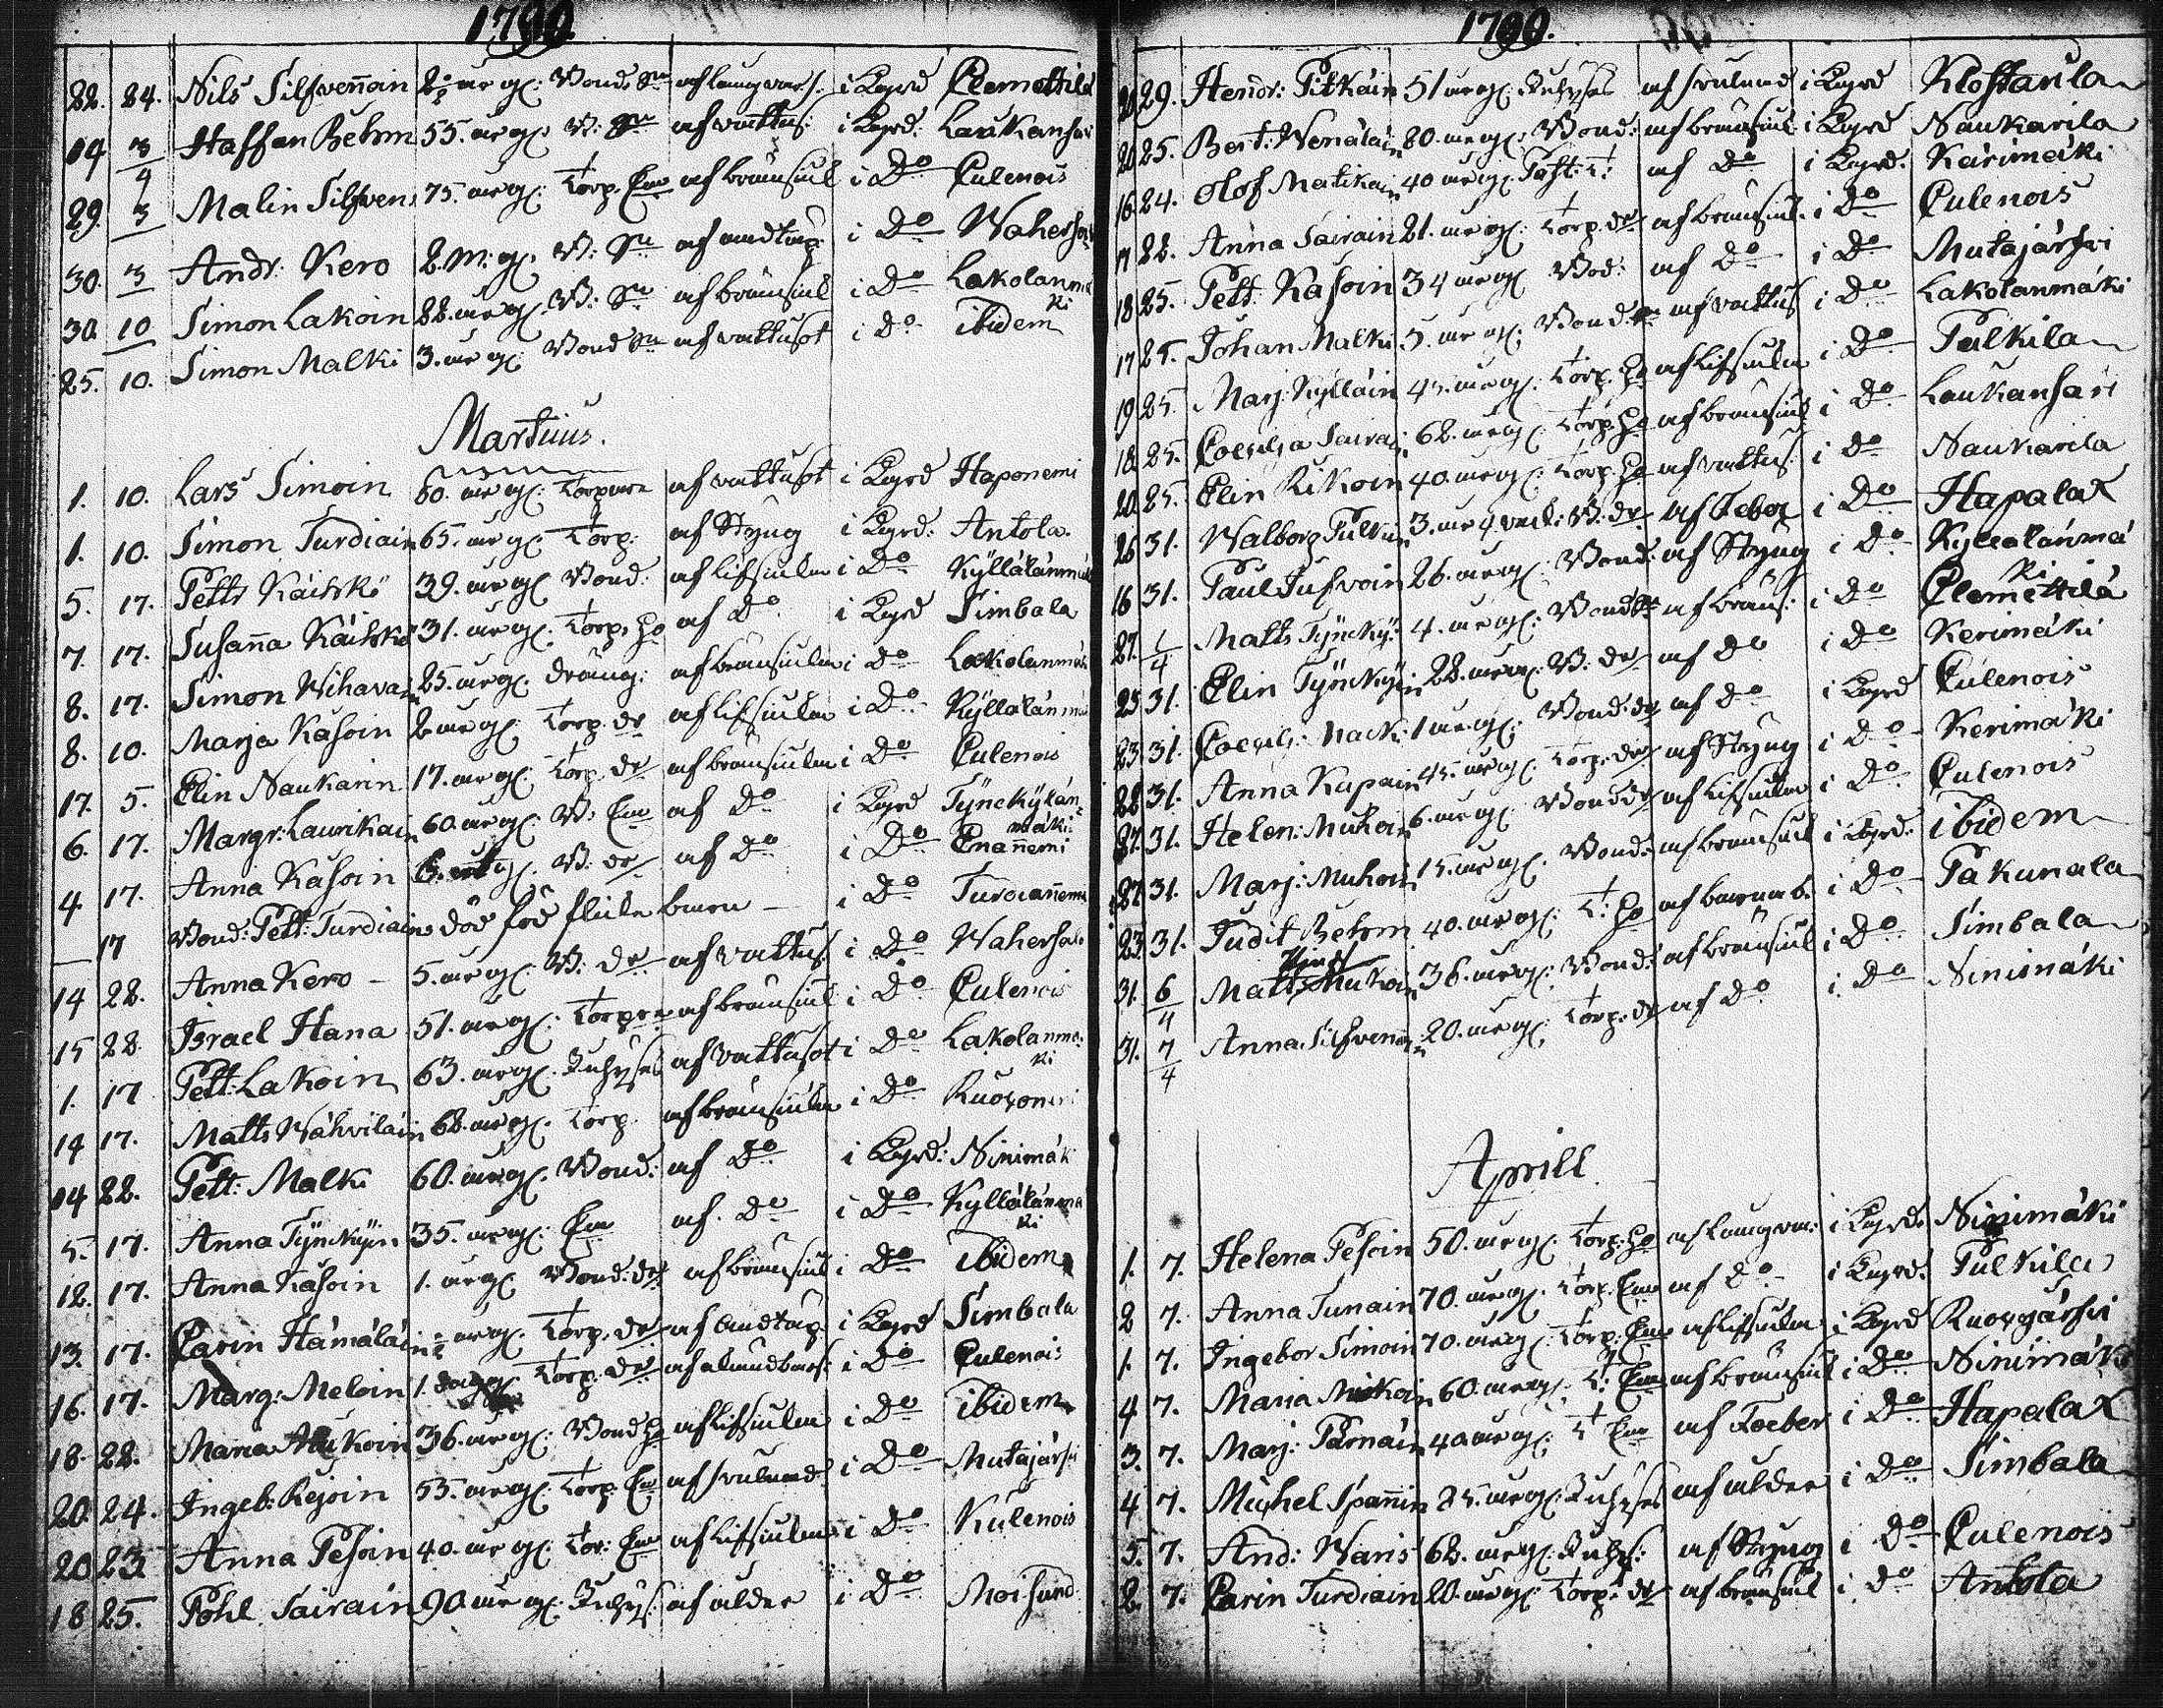 1790.
22. 24. Nils Silfvennain 2½ år g: Bond. Sn af långvars. i Bÿrd Clemettilä
14 3/4 Staffan Behm 55. år g: B: Sn af vattus: i Bÿrd: Laukansari
29. 3 Malin Silfven 75. år g: Torp. Enk af brännsiuk i Do Culenois
30. 3 Andr: Kero 2. M: g: B: Sn af andtäp: i Do Wahersalo
30. 10 Simon Lakoin 22. år g: B: Sn af brännsiuk i Do Lakolanmäki
25. 10. Simon Malki 3. år g: Bond Sn af vattusot i Do ibidem
Martius.
1. 10. Lars Simoin 60. år g: Torpare af vattusot i Bÿrd Haponemi
1. 10. Simon Turdiain 65. år g: Torp: af Styng i Bÿrd: Antola.
5. 17. Pettr Käiskö 39. år g: Bond: af Lifsiukn i Do Kÿllälänmäki
7. 17. Susanna Käiskö 31. år g: Torp. Ho af Do i Bÿrd Simbala
8. 17. Simon Wihavain 25. år g: dräng: af brännsiukn i Do Lakolanmäki
8. 10. Marja Kasoin 2. år g: Torp. dr af lifsiukn i Do Kÿllälänmä
17. 5. Elin Naukarin 17. år g: Torp. dr af brännsiukn i Do Culenois
6. 17. Margr: Laurikain 60. år g: B: Enk af Do i Bÿrd Tÿnckÿlänmäki
4. 17. Anna Kasoin g: B: dr af Do i Do Enanemi
17 Bond: Pett: Turdiains död föd flicke barn — i Do Turdianemi
14 22. Anna Kero — 5. år g: B: dr: af vattus: i Do Wahersalo
15 22. Israel Hana 51. år g: Torpare af brännsiuk i Do Culenois
1. 17 Pett: Lakoin 63. år g: Inhÿses af vattusot i Do Lakolanmäki
14 17. Matts Wähviläin 68. år g: Torp. af brännsiukn i Do Ruoconemi
14 22. Pett: Malki 60. år g: Bond: af Do i Bÿrd: Ninimäk
5. 17. Anna Tÿnckÿin 35. år g: Enk af. Do i Do Kÿllälänmäki
12. 17. Anna Kasoin 1. år g: Bond: dr af brännsiuk i Do ibidem
13. 17. Carin Hämäläin ½ år g: Torp. dr af andtäp: i Bÿrd Simbala
16. 17. Marg: Meloin 1. dag g: Torp: dr af i Do Culenois
18. 22. Maria Muhoin 36. år g: Bond Ho af Lifsiukn i Do ibidem
20 24. Ingeb: Rejoin 55. år g: Torp. Enk af i Do Mutajärfvi
20 23 Anna Pesoin 40. år g: Tor: Enk af Lifsiukn i Do Kulenois
18 25. Pohl Sairain 90. år g: Inhÿs: af ålder i Do Moisund
1790.
29. Hendr: Pitkäin 51 år g: Inhÿses af i Bÿrd Klostarila
20 25. Bert: Wenäläin 80. år g: Bond: af brännsiuk i Bÿrd Naukarila
16 24. Olof Matikain 40 år g: af Do i Bÿrd. Kärimäki
17 22. Anna Sairain 21. år g: Torp. dr af brännsiuk i Do Culenois
18 25. Pett: Kasoin 34 år g: Bod: af Do i Do Mutajärfvi
17 25. Johan Malki 5. år g: Bond Sn af vattus i Do Lakolanmäki
19 25. Marj: Kÿlläin 45. år g: Torp. Ho af Lifsiukn i Do Pulkila
18 25. Coecilja Sairai 62. år g: Torp. Ho af brännsiuk i Do Laukansari
20 25. Elin Rikoin 40. år g: Torp: Ho af vattus: i Do Naukarila
26 31. Walborg Pulkin 3. år 4 veck: B: dr af Feber i Do Hapalax
16 31. Paul Jufvoin 26. år g: Bond. af Styng i Do Kÿllälänmäki
27. 1/4 Matts Tÿnckÿi 4. år g: Bond Sn af bräns: i Do Clemettilä
25 31. Elin Tÿnckÿin 22. år g: B: dr af Do i Do Kerimäki
23 31. Coecili: Mack: 1 år g: Bond: dr af Do i Bÿrd Culenois
22 31. Anna Kapain 45. år g: Torp. dr af Styng i Do Kerimäki
27. 31. Helen: Muhoin 6. år g: Bond dr af Lifsiukn i Do Culenois
27 31. Marj: Muhoin 15. år g: Bond: af brännsiuk i Bÿrd: ibidem
23 31. Judit Behm 40. år g: T: Ho af barnsb. i Do Pakunala
31. 6/4 Matts 36. år g: Bond: af brännsiuk i Do Simbala
31. 7/4 Anna Silfvenn 20. år g: Torp: dr af Do i Do Ninimäki
Aprill
1. 7. Helena Pesoin 50. år g: Torp: Ho af långvar: i Bÿrd. Ninimäki
2 7. Anna Tunain 70. år g: Torp: Enk af Do i Bÿrd. Pulkila
1. 7. Ingebor Simoin 70. år g: Torp: Enk af Lifsiukn i Bÿrd Ruocojärfvi
4 7. Maria Mickoin 60. år g: T: Enk af brännsiuk i Do Ninimäki
3. 7. Marj: Pärnäin 40 år g: T Enk af Foeber i Do Hapalax
4 7. Michel Spannin 85. år g: Inhÿses af ålder i Do Simbala
5. 7. And: Waris 62. år g: Inhÿs: af Styng i Do Culenois
2. 7. Carin Turdiain 20. år g: Torp: dr af brännsiuk i Do Antola